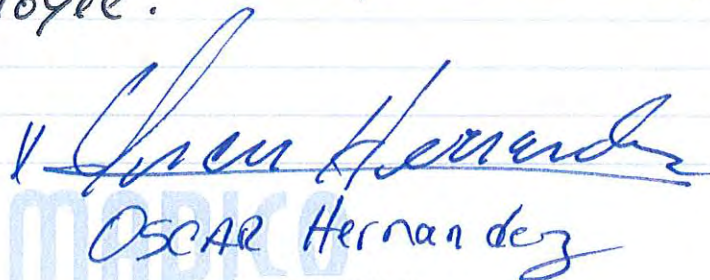 x Oscar Hernandez
OSCAR Hernandez